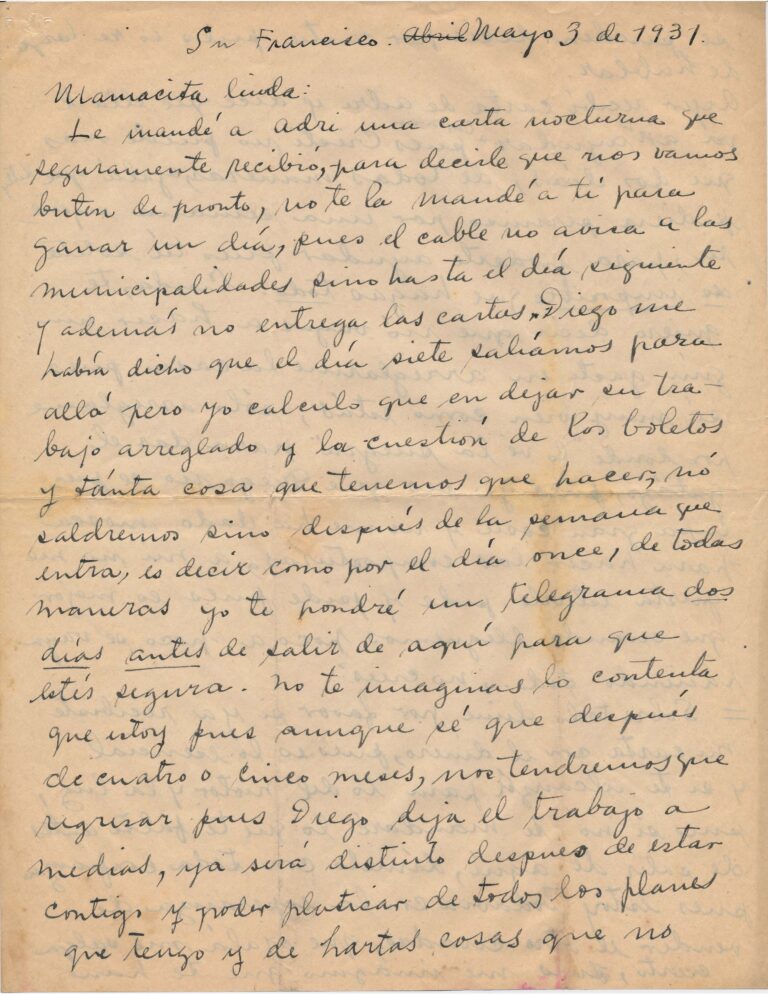 Sn Francisco. Abril Mayo 3 de 1931.
Mamacita linda:
Le mandé a Adri una carta nocturna que
seguramente recibió, para decirle que nos vamos
buten de pronto, no te la mandé a tí para
ganar un día, pues el cable no avisa a las
municipalidades sino hasta el día siguiente
y además no entrega las cartas. Diego me
había dicho que el día siete salíamos para
allá pero yo calculo que en dejar su tra-
bajo arreglado y la cuestión de los boletos
y tánta cosa que tenemos que hacer, nó
saldremos sino después de la semana que
entra, es decir como por el día once, de todas
maneras yo te pondré un telegrama dos
días antes de salir de aquí para que
estés segura. No te imaginas lo contenta
que estoy pues aunque sé que después
de cuatro o cinco meses, nos tendremos que
regresar pues Diego deja el trabajo a
medias, ya será distinto despues de estar
contigo y poder platicar de todos los planes
que tengo y de hartas cosas que no